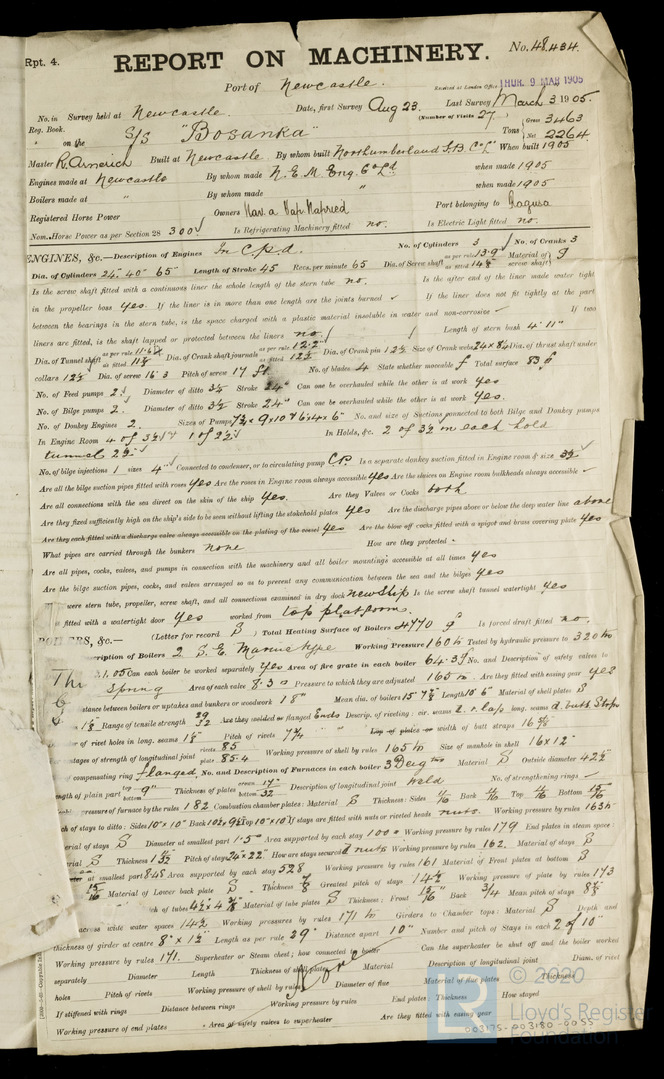 Rpt. 4.
REPORT ON MACHINERY.
No. 48434
Port of Newcastle.
Received at London Office THUR. 9 MAR 1905
No. in Survey held at Newcastle. Date, first Survey Aug 23. Last Survey March 3 1905.
Reg. Book. (Number of Visits 27)
on the S/S "Bosanka" Tons Gross 3463 Net 2264
Master R. Americh Built at Newcastle By whom built Northumberland S.B. Co Ld When built 1905
Engines made at Newcastle By whom made N.E.M. Eng. Co Ld when made 1905
Boilers made at " By whom made " when made 1905
Registered Horse Power Owners Nav. a Vap. Napried Port belonging to Ragusa
Nom. Horse Power as per Section 28 300 Is Refrigerating Machinery fitted no. Is Electric Light fitted no.
ENGINES, &c.—Description of Engines No. of Cylinders 3 No. of Cranks 3
Dia. of Cylinders 24" 40" 65" Length of Stroke 45 Revs. per minute 65 Dia. of Screw shaft as per rule 13.9 as fitted Material of screw shaft
Is the screw shaft fitted with a continuous liner the whole length of the stern tube no. Is the after end of the liner made water tight
in the propeller boss yes. If the liner is in more than one length are the joints burned If the liner does not fit tightly at the part
between the bearings in the stern tube, is the space charged with a plastic material insoluble in water and non-corrosive If two
liners are fitted, is the shaft lapped or protected between the liners no. Length of stern bush 4' 11"
Dia. of Tunnel shaft as per rule as fitted Dia. of Crank shaft journals as per rule 12.2" as fitted 12½ Dia. of Crank pin 12½ Size of Crank webs Dia. of thrust shaft under
collars 12½ Dia. of screw 16' 3 Pitch of screw 17 ft No. of blades 4 State whether moveable Total surface 83
No. of Feed pumps 2 Diameter of ditto 3½ Stroke 24" Can one be overhauled while the other is at work yes
No. of Bilge pumps 2. Diameter of ditto 3½ Stroke 24" Can one be overhauled while the other is at work yes.
No. of Donkey Engines 2. Sizes of Pumps No. and size of Suctions connected to both Bilge and Donkey pumps
In Engine Room 4 of 3½ & 1 of 2½ In Holds, &c. 2 of 3½ in each hold
tunnel 2½
No. of bilge injections 1 sizes 4" Connected to condenser, or to circulating pump C.P. Is a separate donkey suction fitted in Engine room & size 3½
Are all the bilge suction pipes fitted with roses yes Are the roses in Engine room always accessible yes Are the sluices on Engine room bulkheads always accessible
Are all connections with the sea direct on the skin of the ship Yes. Are they Valves or Cocks both
Are they fixed sufficiently high on the ship's side to be seen without lifting the stokehold plates yes Are the discharge pipes above or below the deep water line above
Are they each fitted with a discharge valve always accessible on the plating of the vessel yes Are the blow off cocks fitted with a spigot and brass covering plate yes
What pipes are carried through the bunkers none How are they protected -
Are all pipes, cocks, valves, and pumps in connection with the machinery and all boiler mountings accessible at all times yes
Are the bilge suction pipes, cocks, and valves arranged so as to prevent any communication between the sea and the bilges yes
were stern tube, propeller, screw shaft, and all connections examined in dry dock new ship Is the screw shaft tunnel watertight yes
is fitted with a watertight door yes worked from top platform.
BOILERS, &c.— (Letter for record S) Total Heating Surface of Boilers 4770 Is forced draft fitted no.
cription of Boilers 2 S.E. Marine type Working Pressure 160 lb Tested by hydraulic pressure to 320 lb
.1.05 Can each boiler be worked separately yes Area of fire grate in each boiler 64.3 No. and Description of safety valves to
spring Area of each valve 8.3 Pressure to which they are adjusted 165 Are they fitted with easing gear yes
stance between boilers or uptakes and bunkers or woodwork 18" Mean dia. of boilers Length 10' 6" Material of shell plates S
1⅛ Range of tensile strength 29 32 Are they welded or flanged Ends Descrip. of riveting: cir. seams d. r. lap long. seams d. butt. Strap
r of rivet holes in long. seams 1⅛ Pitch of rivets 7¾ Lap of plates or width of butt straps
tages of strength of longitudinal joint rivets 85 plate 85.4 Working pressure of shell by rules 165 lb Size of manhole in shell 16 x 12"
of compensating ring flanged No. and Description of Furnaces in each boiler 3 Material S Outside diameter 42½
ength of plain part Thickness of plates Description of longitudinal joint weld No. of strengthening rings -
pressure of furnace by the rules 182 Combustion chamber plates: Material S Thickness: Sides Back Top Bottom
ch of stays to ditto: Sides 10" x 10" Back Top 10" x 10" If stays are fitted with nuts or riveted heads nuts. Working pressure by rules 163 lb
terial of stays S Diameter at smallest part Area supported by each stay 100 Working pressure by rules 179 End plates in steam space:
terial S Thickness Pitch of stays 24 x 22" How are stays secured d. nuts Working pressure by rules 162. Material of stays S
at smallest part Area supported by each stay 528 Working pressure by rules 161 Material of Front plates at bottom S
15/16 Material of Lower back plate S Thickness Greatest pitch of stays 14½ Working pressure of plate by rules 173
ch of tubes Material of tube plates S Thickness: Front 15/16 Back ¾ Mean pitch of stays
across wide water spaces 14½ Working pressures by rules 171 lb Girders to Chamber tops: Material S Depth and
thickness of girder at centre 8" x 1½" Length as per rule 29" Distance apart 10" Number and pitch of Stays in each 2 of 10"
Working pressure by rules 171. Superheater or Steam chest; how connected to boiler None Can the superheater be shut off and the boiler worked
separately Diameter Length Thickness of shell plates Material Description of longitudinal joint Diam. of rivet
holes Pitch of rivets Working pressure of shell by rules Diameter of flue Material of flue plates Thickness
If stiffened with rings Distance between rings Working pressure by rules End plates: Thickness How stayed
Working pressure of end plates Area of safety valves to superheater Are they fitted with easing gear
© 2020
Lloyd's Register
Foundation
003175-003180-0055